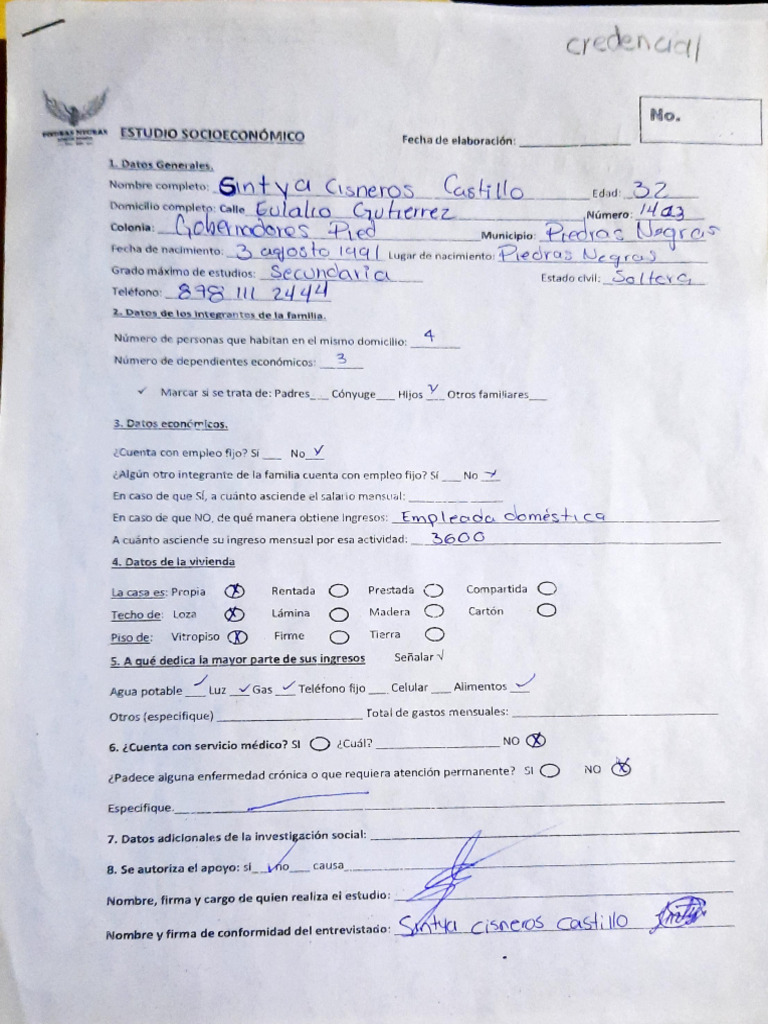 credencial
No.
PIEDRAS NEGRAS
ESTUDIO SOCIOECONÓMICO Fecha de elaboración: ____________
1. Datos Generales.
Nombre completo: Sintya Cisneros Castillo Edad: 32
Domicilio completo: Calle Eulalio Gutierrez Número: 1403
Colonia: Gobernadores Pied Municipio: Piedras Negras
Fecha de nacimiento: 3 agosto 1991 Lugar de nacimiento: Piedras Negras
Grado máximo de estudios: Secundaria Estado civil: Soltera
Teléfono: 878 111 2444
2. Datos de los integrantes de la familia.
Número de personas que habitan en el mismo domicilio: 4
Número de dependientes económicos: 3
✓ Marcar si se trata de: Padres___ Cónyuge___ Hijos ✓ Otros familiares___
3. Datos económicos.
¿Cuenta con empleo fijo? Sí ___ No ✓
¿Algún otro integrante de la familia cuenta con empleo fijo? Sí ___ No ✓
En caso de que SÍ, a cuánto asciende el salario mensual: ____________
En caso de que NO, de qué manera obtiene ingresos: Empleada doméstica
A cuánto asciende su ingreso mensual por esa actividad: 3600
4. Datos de la vivienda
La casa es: Propia X Rentada Prestada Compartida
Techo de: Loza X Lámina Madera Cartón
Piso de: Vitropiso X Firme Tierra
5. A qué dedica la mayor parte de sus ingresos Señalar √
Agua potable ✓ Luz ✓ Gas ✓ Teléfono fijo ___ Celular ___ Alimentos ✓
Otros (especifique) ____________ Total de gastos mensuales: ____________
6. ¿Cuenta con servicio médico? SI ¿Cuál? ____________ NO X
¿Padece alguna enfermedad crónica o que requiera atención permanente? SI NO X
Especifique.
7. Datos adicionales de la investigación social: ____________
8. Se autoriza el apoyo: si ✓ no___ causa____________
Nombre, firma y cargo de quien realiza el estudio:
Nombre y firma de conformidad del entrevistado: Sintya cisneros castillo